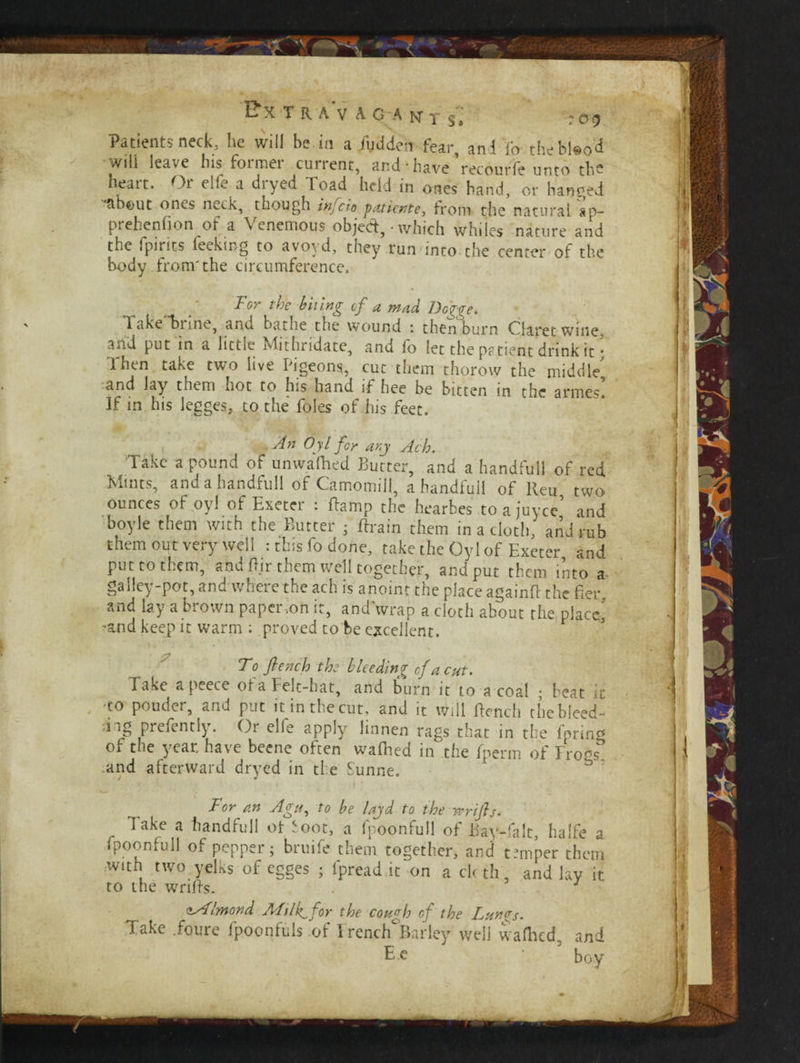 EXTRAVAGANTS. 209
Patients neck, he will be in a ſudden fear, and ſo the blood
will leave his former current, and have recourſe unto the
heart. Or elſe a dryed Toad held in ones hand, or hanged
about ones neck, though inſcio patiente, from the natural ap-
prehenſion of a Venemous object, which whiles nature and
the ſpirits ſeeking to avoyd, they run into the center of the
body from the circumference.
For the biting of a mad Dogge.
Take brine, and bathe the wound : then burn Claret wine,
and put in a little Mithridate, and ſo let the patient drink it ;
Then take two live Pigeons, cut them thorow the middle,
and lay them hot to his hand if hee be bitten in the armes.
If in his legges, to the ſoles of his feet.
An Oyl for any Ach.
Take a pound of unwaſhed Butter, and a handfull of red
Mints, and a handfull of Camomill, a handfull of Reu, two
ounces of oyl of Exeter : ſtamp the hearbes to a juyce, and
boyle them with the Butter ; ſtrain them in a cloth, and rub
them out very well : this ſo done, take the Oyl of Exeter, and
put to them, and ſtir them well together, and put them into a
galley-pot, and where the ach is anoint the place againſt the fier,
and lay a brown paper on it, and wrap a cloth about the place,
and keep it warm : proved to be excellent.
To ſtench the bleeding of a cut.
Take a peece of a Felt-hat, and burn it to a coal ; beat it
to pouder, and put it in the cut, and it will ſtench the bleed-
ing preſently. Or elſe apply linnen rags that in the ſpring
of the year have beene often waſhed in the ſperm of Frogs,
and afterward dryed in the Sunne.
For an Agu, to be layd to the wriſts.
Take a handfull of Soot, a ſpoonfull of Bay-ſalt, halfe a
ſpoonfull of pepper ; bruiſe them together, and temper them
with two yelks of egges ; ſpread it on a cloth, and lay it
to the wriſts.
Almond Milk for the cough of the Lungs.
Take foure ſpoonfuls of French Barley well waſhed, and
E e boy